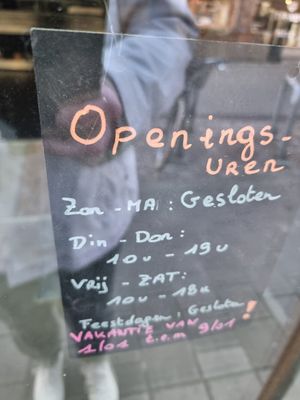 Openings-
UREN
Zon - MA : Gesloten
Din - Don :
10u - 19u
Vrij - ZAT :
10u - 18u
Feestdagen : Gesloten !
VAKANTIE VAN
1/01 t.e.m 9/01